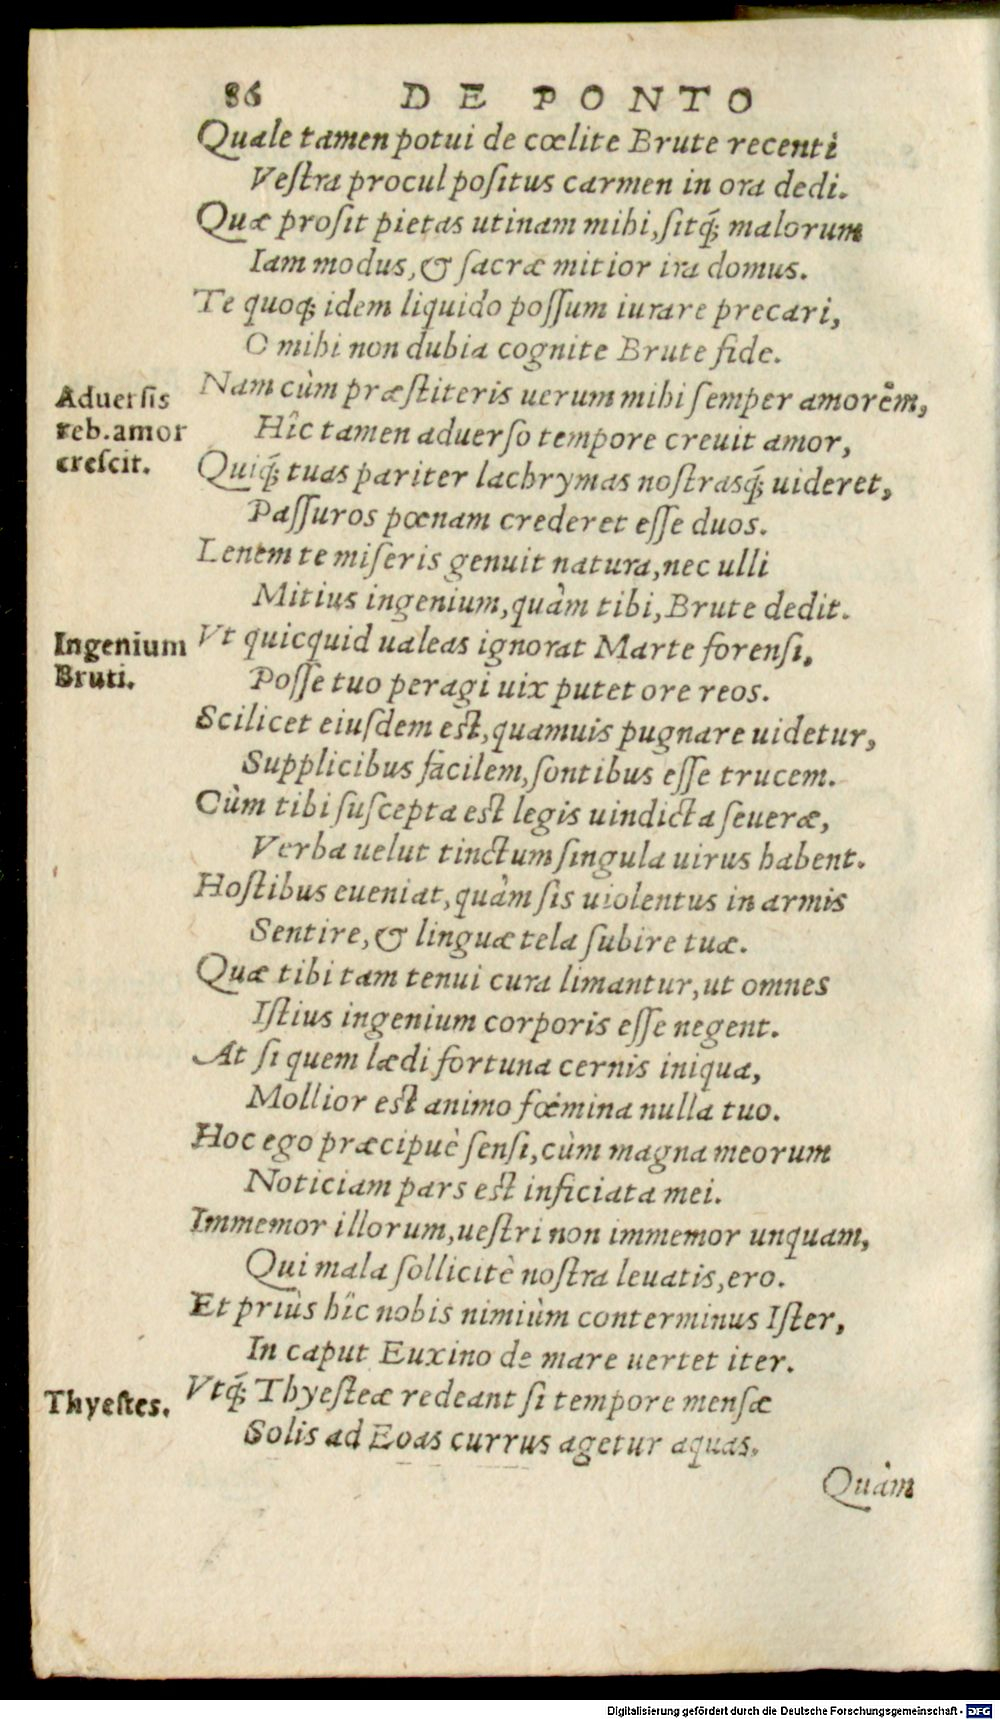 86 DE PONTO
Quale tamen potui de cœlite Brute recenti
Veſtra procul poſitus carmen in ora dedi.
Quæ proſit pietas utinam mihi, ſitq́; malorum
Iam modus, & ſacræ mitior ira domus.
Te quoq; idem liquido poſſum iurare precari,
O mihi non dubia cognite Brute fide.
Aduerſis
reb. amor
creſcit.
Nam cùm præſtiteris uerum mihi ſemper amorẽm,
Hîc tamen aduerſo tempore creuit amor,
Quiq́; tuas pariter lachrymas noſtrasq́; uideret,
Paſſuros pœnam crederet eſſe duos.
Lenem te miſeris genuit natura, nec ulli
Mitius ingenium, quàm tibi, Brute dedit.
Ingenium
Bruti.
Vt quicquid ualeas ignorat Marte forenſi,
Poſſe tuo peragi uix putet ore reos.
Scilicet eiuſdem eſt, quamuis pugnare uidetur,
Supplicibus facilem, ſontibus eſſe trucem.
Cùm tibi ſuſcepta eſt legis uindicta ſeueræ,
Verba uelut tinctum ſingula uirus habent.
Hoſtibus eueniat, quàm ſis uiolentus in armis
Sentire, & linguæ tela ſubire tuæ.
Quæ tibi tam tenui cura limantur, ut omnes
Iſtius ingenium corporis eſſe negent.
At ſi quem lædi fortuna cernis iniqua,
Mollior eſt animo fœmina nulla tuo.
Hoc ego præcipuè ſenſi, cùm magna meorum
Noticiam pars eſt inficiata mei.
Immemor illorum, ueſtri non immemor unquam,
Qui mala ſollicitè noſtra leuatis, ero.
Et priùs hîc nobis nimiùm conterminus Iſter,
In caput Euxino de mare uertet iter.
Thyeſtes.
Vtq́; Thyeſteæ redeant ſi tempore menſæ
Solis ad Eoas currus agetur aquas.
Quàm
Digitalisierung gefördert durch die Deutsche Forschungsgemeinschaft - DFG